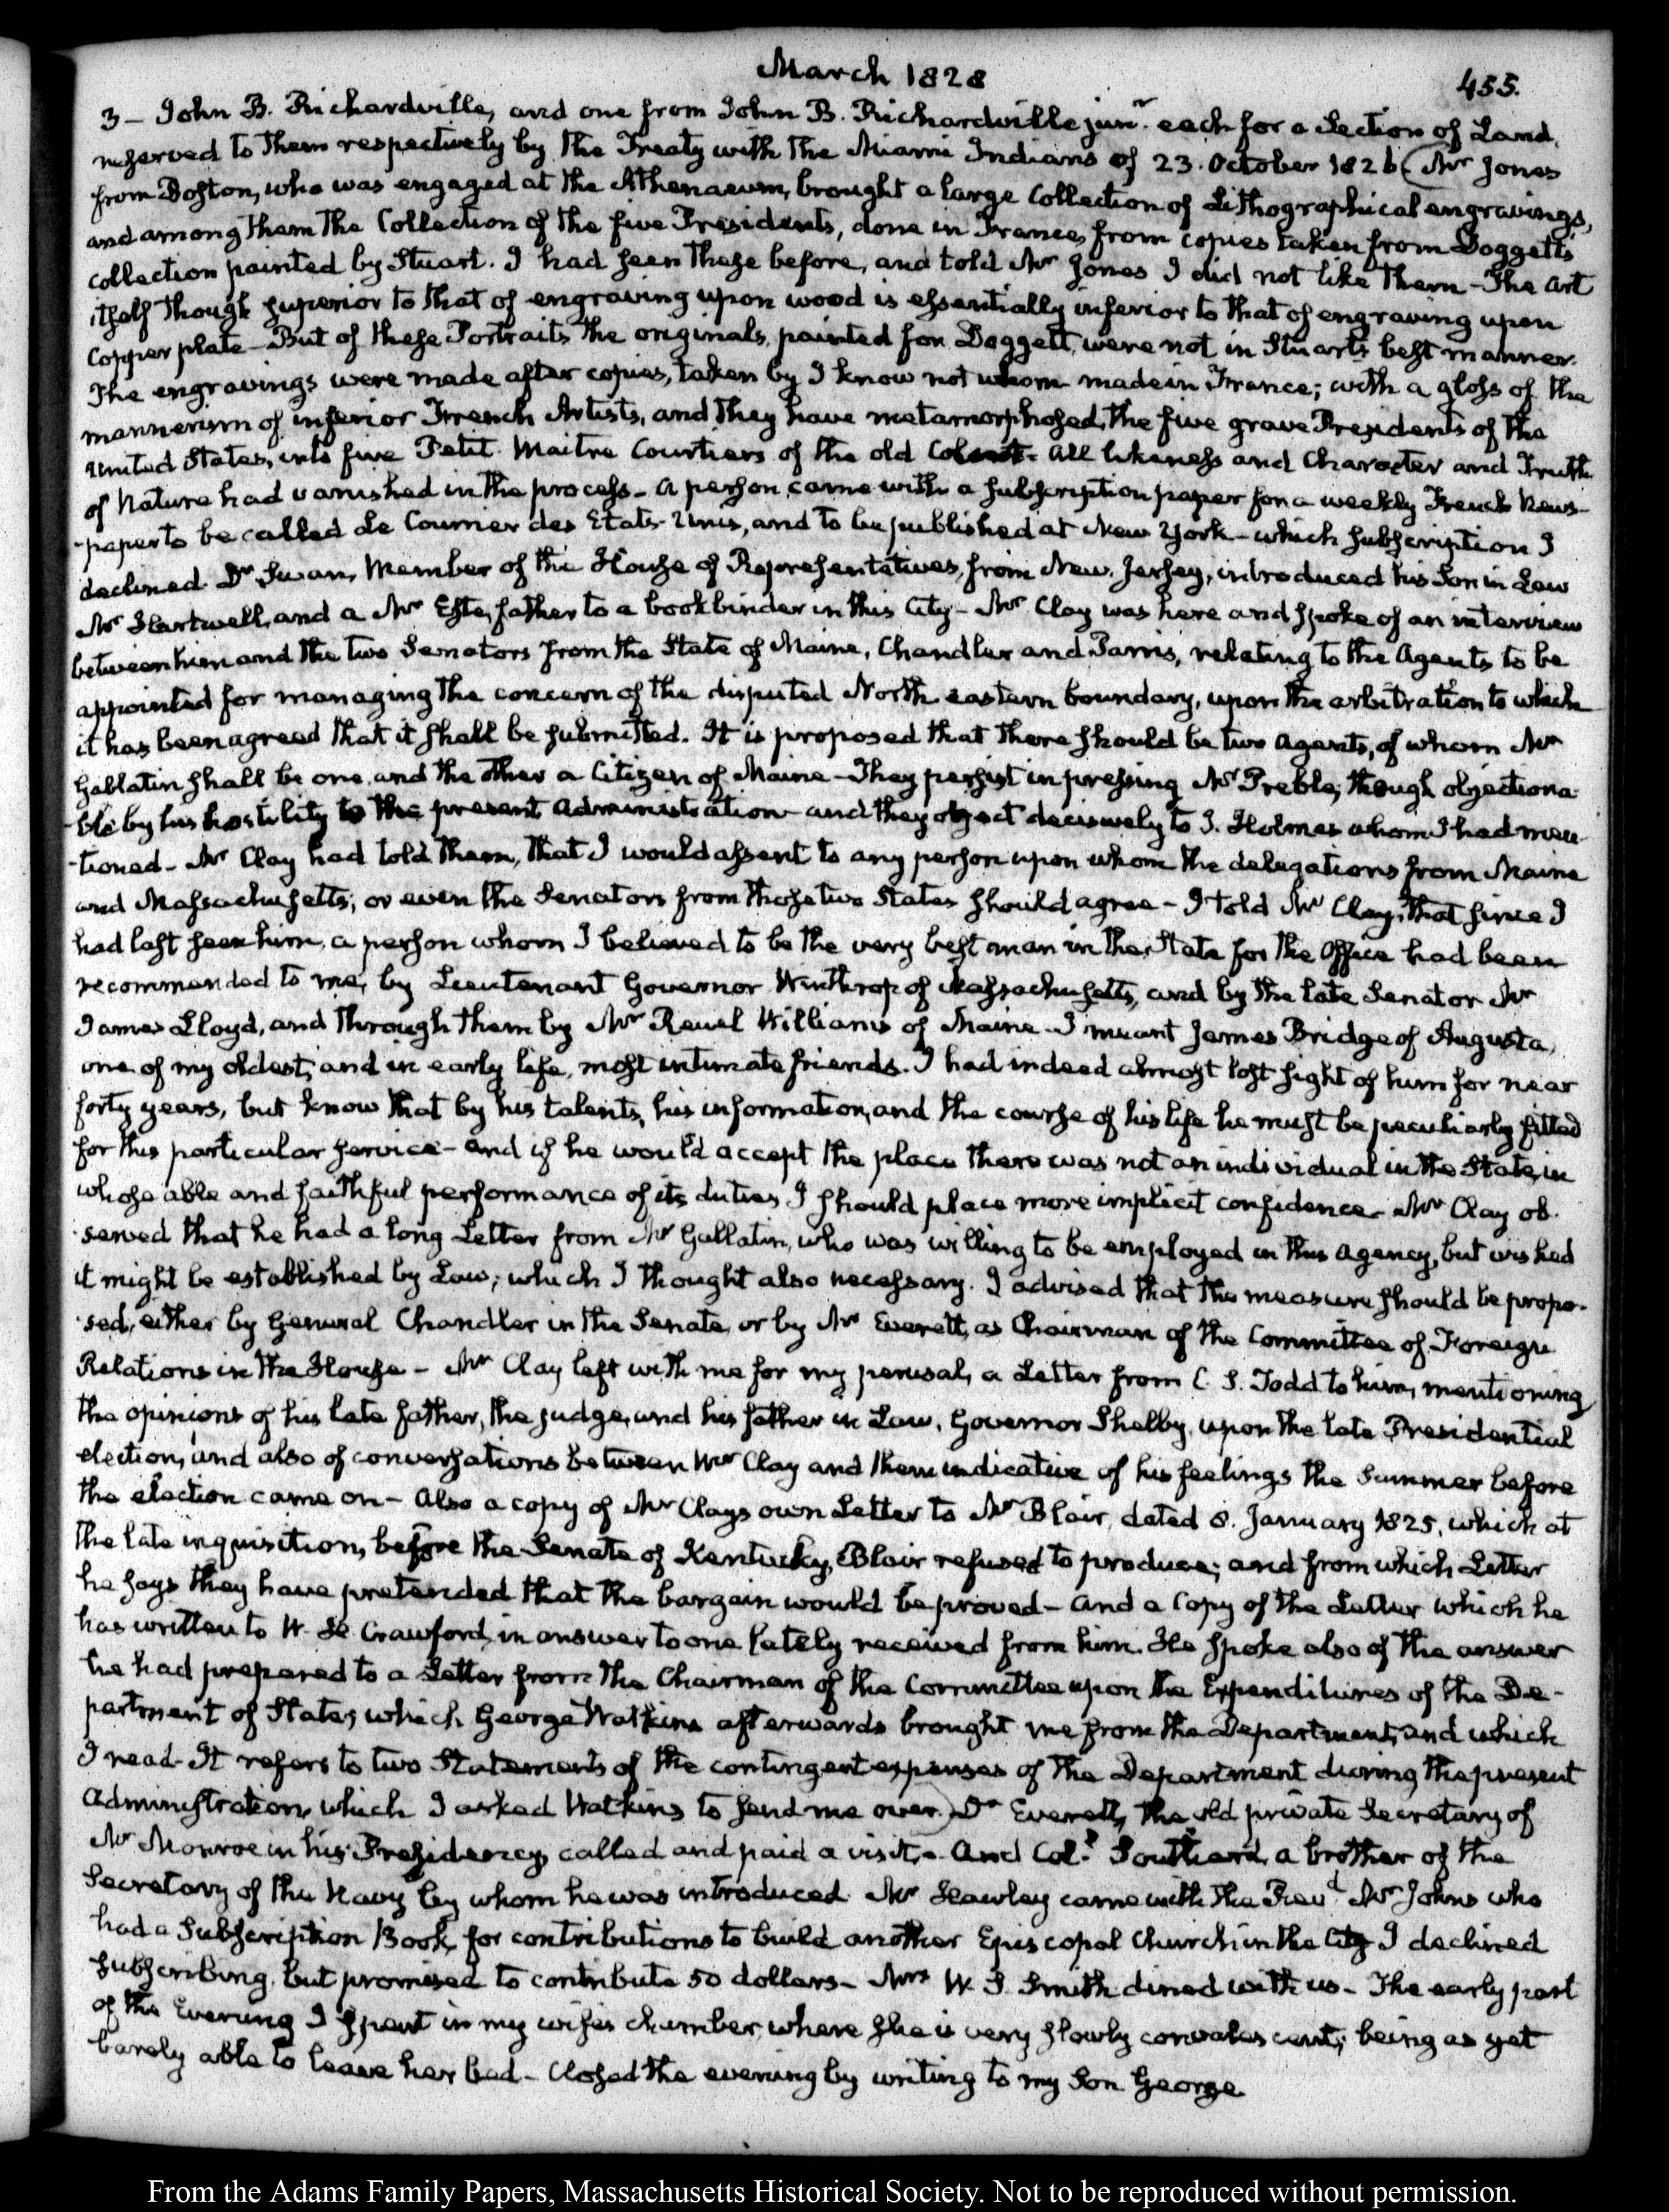 March 1828
455.
3 – John B. Richardville, and one from John B. Richardville junr. each for a Section of Land,
reserved to them respectively by the Treaty with the Miami Indians of 23. October 1826 (Mr Jones
from Boston, who was engaged at the Athenaeum, brought a large Collection of Lithographical engravings,
and among them the Collection of the five Presidents, done in France, from copies taken from Doggett's
collection painted by Stuart. I had seen these before, and told Mr Jones I did not like them – The art
itself though superior to that of engraving upon wood is essentially inferior to that of engraving upon
Copper plate – But of these Portraits the originals, painted for Doggett, were not in Stuart's best manner.
The engravings were made after copies, taken by I know not whom made in France; with a gloss of the
mannerism of inferior French Artists, and they have metamorphosed, the five grave Presidents of the
United States, into five Petit Maitre Courtiers of the old – all likeness and Character and Truth
of Nature had vanished in the process – A person came with a subscription paper for a weekly French News-
-paper to be called Le Courrier des Etats-Unis, and to be published at New York – which subscription I
declined Dr Swan, Member of the House of Representatives, from New Jersey, introduced his Son in Law
Mr Hartwell, and a Mr Este, father to a bookbinder in this City – Mr Clay was here and spoke of an interview
between him and the two Senators from the State of Maine, Chandler and Parris, relating to the Agents to be
appointed for managing the concern of the disputed North eastern boundary, upon the arbitration to which
it has been agreed that it shall be submitted. It is proposed that there should be two Agents, of whom Mr
Gallatin shall be one and the other a Citizen of Maine – They persist in pressing Mr Preble, though objectiona-
-ble by his hostility to the present Administration – and they object decisively to J. Holmes whom I had men-
-tioned – Mr Clay had told them, that I would assent to any person upon whom the delegations from Maine
and Massachusetts, or even the Senators from those two States should agree – I told Mr Clay, that since I
had last seen him, a person whom I believed to be the very best man in the State for the Office had been
recommended to me, by Lieutenant Governor Winthrop of Massachusetts, and by the late Senator Mr
James Lloyd, and through them by Mr Reuel Williams of Maine – I meant James Bridge of Augusta,
one of my oldest, and in early life, most intimate friends. I had indeed almost lost sight of him for near
forty years, but know that by his talents, his information, and the course of his life he must be peculiarly fitted
for this particular service – and if he would accept the place there was not an individual in the State, in
whose able and faithful performance of its duties I should place more implicit confidence – Mr Clay ob-
-served that he had a long Letter from Mr Gallatin, who was willing to be employed in this Agency, but wished
it might be established by Law; which I thought also necessary. I advised that the measure should be propo-
-sed, either by General Chandler in the Senate, or by Mr Everett, as Chairman of the Committee of Foreign
Relations in the House – Mr Clay left with me for my perusal, a Letter from C. S. Todd to him, mentioning
the opinions of his late father, the judge, and his father in Law, Governor Shelby, upon the late Presidential
election, and also of conversations between Mr Clay and them indicative of his feelings the Summer before
the election came on – Also a copy of Mr Clays own Letter to Mr Blair, dated 8. January 1825, which at
the late inquisition, before the Senate of Kentucky, Blair refused to produce; and from which Letter
he says they have pretended that the bargain would be proved – and a Copy of the Letter which he
has written to W. H. Crawford, in answer to one lately received from him. He spoke also of the answer
he had prepared to a Letter from the Chairman of the Committee upon the Expenditures of the De-
partment of State, which George Watkins afterwards brought me from the Department, and which
I read – It refers to two Statements of the contingent expenses of the Department during the present
Administration, which I asked Watkins to send me over.) Dr Everett, the old private Secretary of
Mr Monroe in his Presidency, called and paid a visit. – And Coll. Southard, a brother of the
Secretary of the Navy by whom he was introduced Mr Hawley came with the Revd. Mr Johns who
had a Subscription Book, for contributions to build another Episcopal Church in the City I declined
subscribing, but promised to contribute 50 dollars – Mrs W. S. Smith dined with us – The early part
of the Evening I spent in my wife's chamber, where she is very slowly convalescent, being as yet
barely able to leave her bed – Closed the evening by writing to my Son George
From the Adams Family Papers, Massachusetts Historical Society. Not to be reproduced without permission.